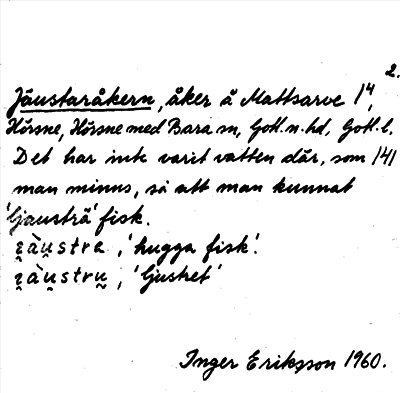 2.
Jäustaråkern, åker å Mattsarve 1⁴,
Hörsne, Hörsne med Bara sn, Gotl. n. hd, Gotl. l.
Det har inte varit vatten där, som 141
man minns, så att man kunnat
'ljausträ' fisk.
i̯àu̯stra, 'hugga fisk'.
i̯àu̯stru̯, 'ljustret'
Inger Eriksson 1960.